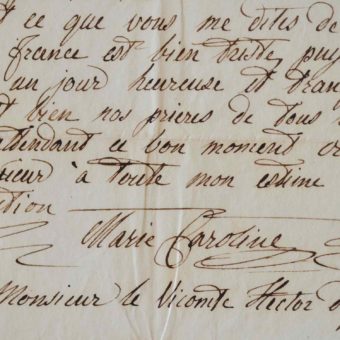 ce que vous me dites de
france est bien triste, puy
un jour heureuse et tran
bien nos prieres de tous
attendant ce bon moment cr
sieur à toute mon estime
ction
Marie Caroline
Monsieur le Vicomte Hector d